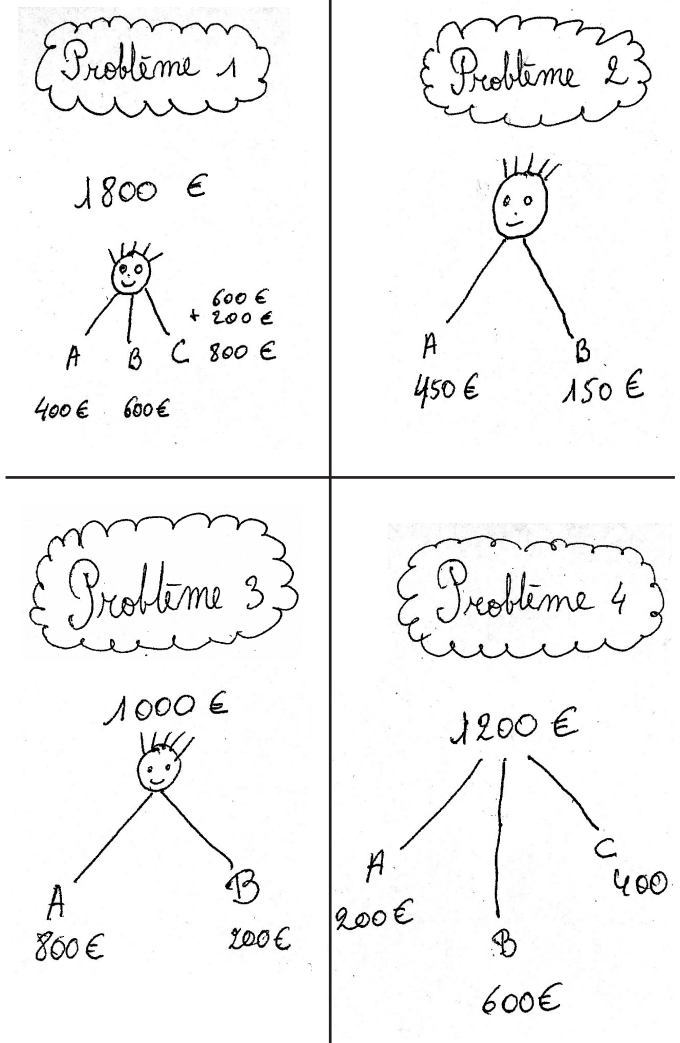 Problème 1
1800 €
600 €
+ 200 €
A B C 800 €
400 € 600 €
Problème 2
A B
450 € 150 €
Problème 3
1000 €
A B
800 € 200 €
Problème 4
1200 €
A C
200 € 400
B
600 €